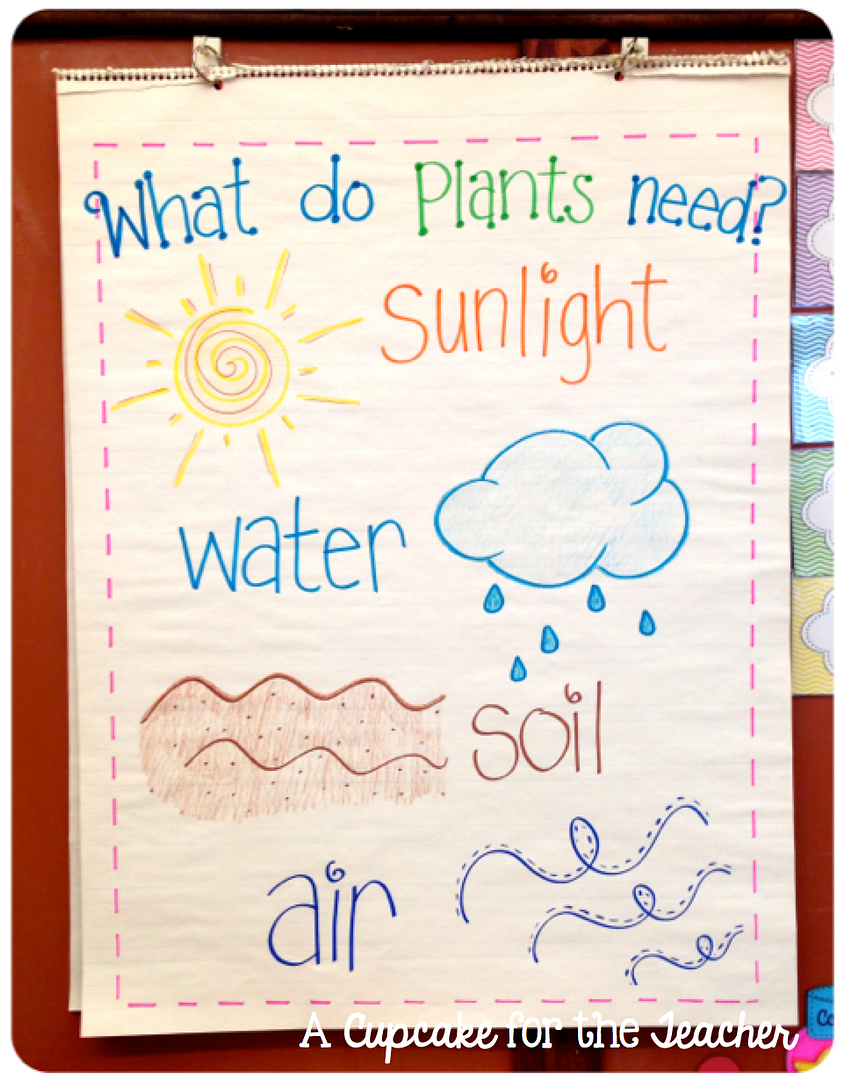 What do Plants need?
Sunlight
water
soil
air
A Cupcake for the Teacher